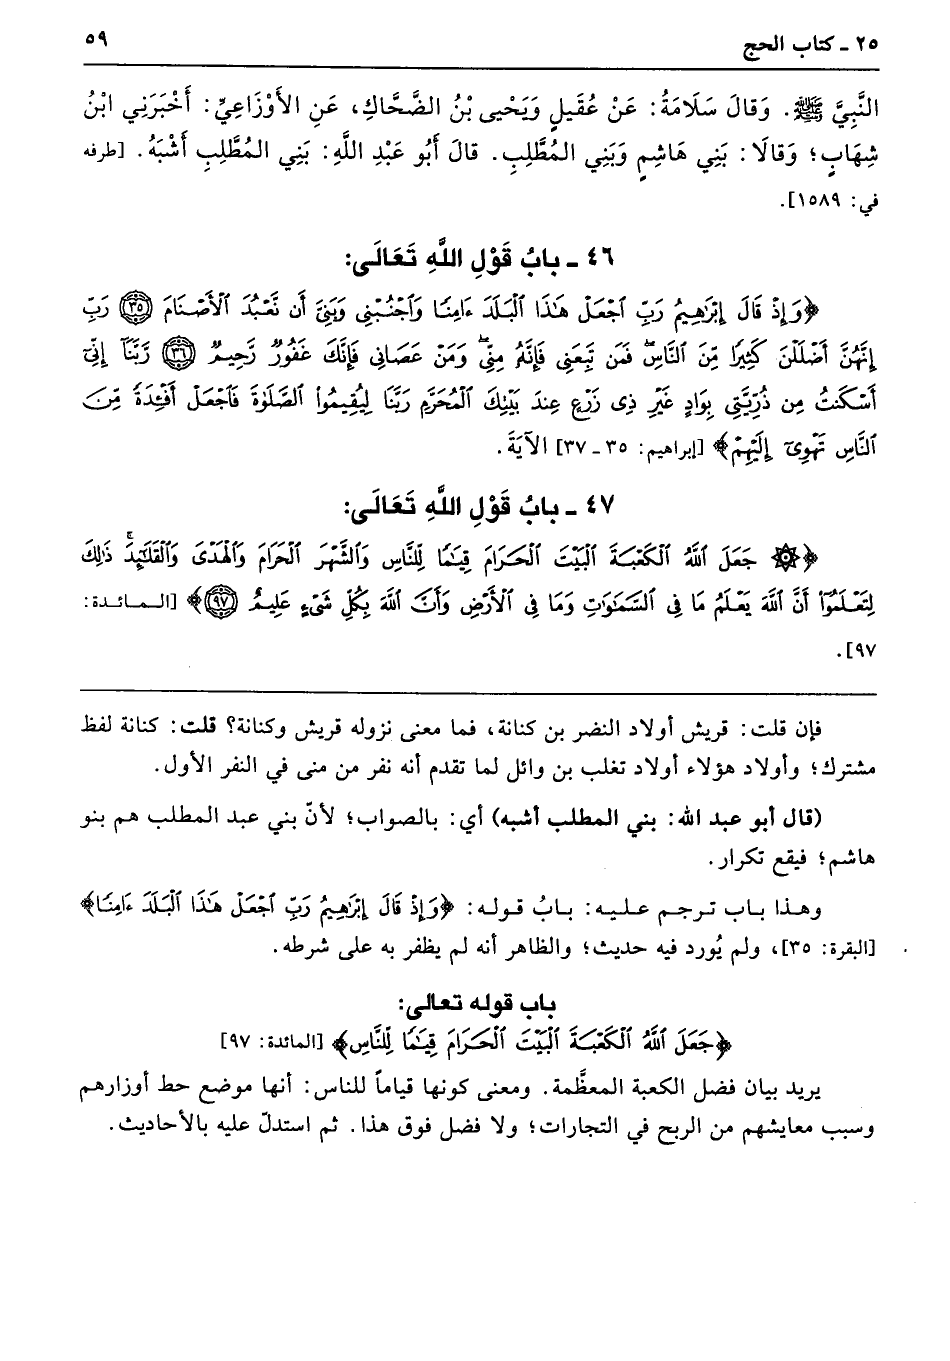 ٢٥ ـ كتاب الحج ٥٩
النَّبِيَّ ﷺ. وَقالَ سَلَامَةُ: عَنْ عُقَيلٍ وَيَحْيى بْنُ الضَّحَّاكِ، عَنِ الأَوْزَاعِيِّ: أَخْبَرَنِي ابْنُ
شِهَابٍ؛ وَقالَا: بَنِي هَاشِمٍ وَبَنِي المُطَّلِبِ. قالَ أَبُو عَبْدِ اللَّهِ: بَنِي المُطَّلِبِ أَشْبَهُ. [طرفه
في: ١٥٨٩].
٤٦ ـ بابُ قَوْلِ اللَّهِ تَعَالَى:
﴿وَإِذْ قَالَ إِبْرَٰهِيمُ رَبِّ ٱجْعَلْ هَـٰذَا ٱلْبَلَدَ ءَامِنًا وَٱجْنُبْنِى وَبَنِىَّ أَن نَّعْبُدَ ٱلْأَصْنَامَ ﴿٣٥﴾ رَبِّ
إِنَّهُنَّ أَضْلَلْنَ كَثِيرًا مِّنَ ٱلنَّاسِ ۖ فَمَن تَبِعَنِى فَإِنَّهُ مِنِّى ۖ وَمَنْ عَصَانِى فَإِنَّكَ غَفُورٌ رَّحِيمٌ ﴿٣٦﴾ رَّبَّنَآ إِنِّىٓ
أَسْكَنتُ مِن ذُرِّيَّتِى بِوَادٍ غَيْرِ ذِى زَرْعٍ عِندَ بَيْتِكَ ٱلْمُحَرَّمِ رَبَّنَا لِيُقِيمُوا۟ ٱلصَّلَوٰةَ فَٱجْعَلْ أَفْـِٔدَةً مِّنَ
ٱلنَّاسِ تَهْوِىٓ إِلَيْهِمْ﴾ [إبراهيم: ٣٥ ـ ٣٧] الآيَةَ.
٤٧ ـ بابُ قَوْلِ اللَّهِ تَعَالَى:
﴿۞ جَعَلَ ٱللَّهُ ٱلْكَعْبَةَ ٱلْبَيْتَ ٱلْحَرَامَ قِيَـٰمًا لِّلنَّاسِ وَٱلشَّهْرَ ٱلْحَرَامَ وَٱلْهَدْىَ وَٱلْقَلَـٰٓئِدَ ۚ ذَٰلِكَ
لِتَعْلَمُوٓا۟ أَنَّ ٱللَّهَ يَعْلَمُ مَا فِى ٱلسَّمَـٰوَٰتِ وَمَا فِى ٱلْأَرْضِ وَأَنَّ ٱللَّهَ بِكُلِّ شَىْءٍ عَلِيمٌ ﴿٩٧﴾﴾ [المائدة:
٩٧].
فإن قلت: قريش أولاد النضر بن كنانة، فما معنى نزوله قريش وكنانة؟ قلت: كنانة لفظ
مشترك؛ وأولاد هؤلاء أولاد تغلب بن وائل لما تقدم أنه نفر من منى في النفر الأول.
(قال أبو عبد الله: بني المطلب أشبه) أي: بالصواب؛ لأنّ بني عبد المطلب هم بنو
هاشم؛ فيقع تكرار.
وهذا باب ترجم عليه: بابُ قوله: ﴿وَإِذْ قَالَ إِبْرَٰهِيمُ رَبِّ ٱجْعَلْ هَـٰذَا ٱلْبَلَدَ ءَامِنًا﴾
[البقرة: ٣٥]، ولم يُورد فيه حديث؛ والظاهر أنه لم يظفر به على شرطه.
باب قوله تعالى:
﴿جَعَلَ ٱللَّهُ ٱلْكَعْبَةَ ٱلْبَيْتَ ٱلْحَرَامَ قِيَـٰمًا لِّلنَّاسِ﴾ [المائدة: ٩٧]
يريد بيان فضل الكعبة المعظَّمة. ومعنى كونها قياماً للناس: أنها موضع حط أوزارهم
وسبب معايشهم من الربح في التجارات؛ ولا فضل فوق هذا. ثم استدلّ عليه بالأحاديث.